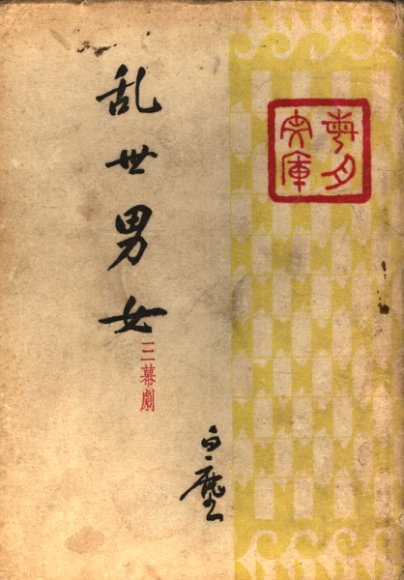 每月
文庫
乱世男女
三幕劇
白塵